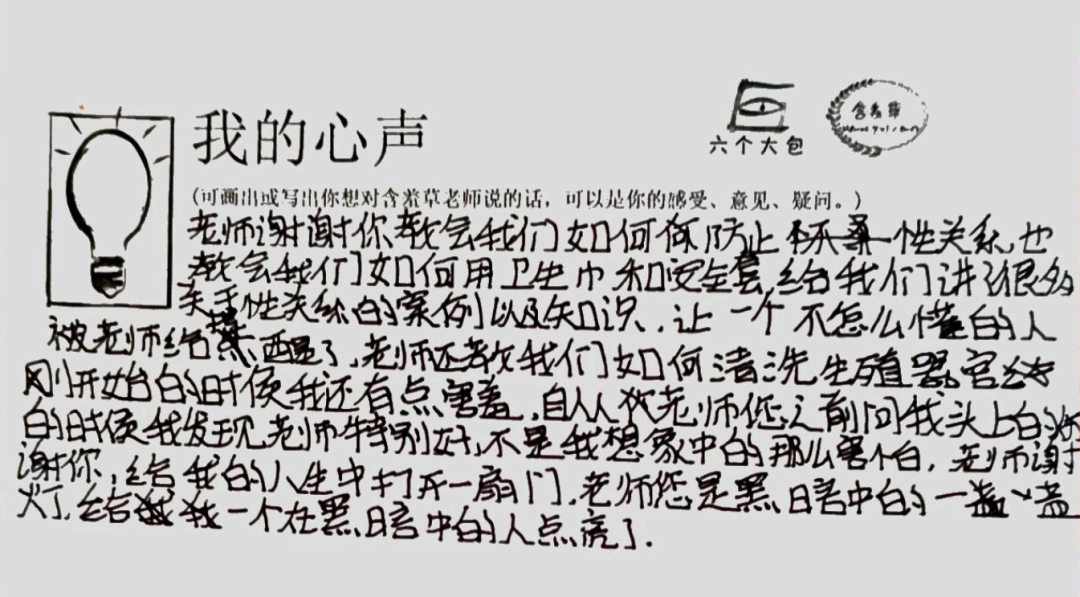 我的心声
六个大包
含羞草
(可画出或写出你想对含羞草老师说的话，可以是你的感受、意见、疑问。)
老师谢谢你教会我们如何防止性关系,也
教会我们如何用卫生巾和安全套,给我们讲了很多
关于性关系的案例以及知识,让一个不怎么懂的人
被老师给点醒了,老师还教我们如何清洗生殖器官
刚开始的时侯我还有点害羞,自从老师您之前问我头上的
的时侯我发现老师特别好,不是我想象中的那么害怕,老师谢
谢你,给我的人生中打开一扇门,老师您是黑暗中的一盏
灯,给我一个在黑暗中的人点亮了.